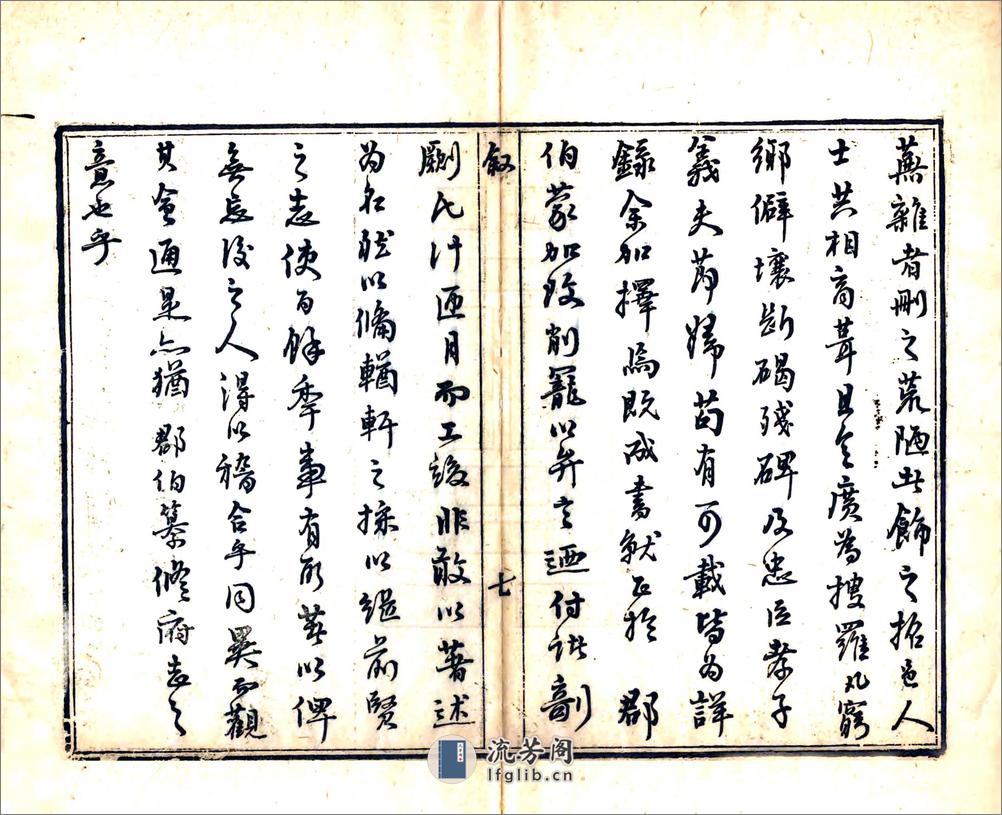 蕪雜者刪之荒陋者飾之招邑人
士共相商葺且令廣為搜羅凡窮
鄉僻壤斷碣殘碑及忠臣孝子
義夫節婦苟有可載皆為詳
錄余加擇焉既成書就正於 郡
伯蒙加改削寵以弁言迺付諸剞
敘
七
劂氏計匝月而工竣非敢以著述
為名聊以備輶軒之採以繼前賢
之志使百餘季事有所藉以俾
無忘後之人得以稽合乎同異而觀
其會通是亦猶 郡伯纂修府志之
意也乎
流芳阁
lfglib.cn